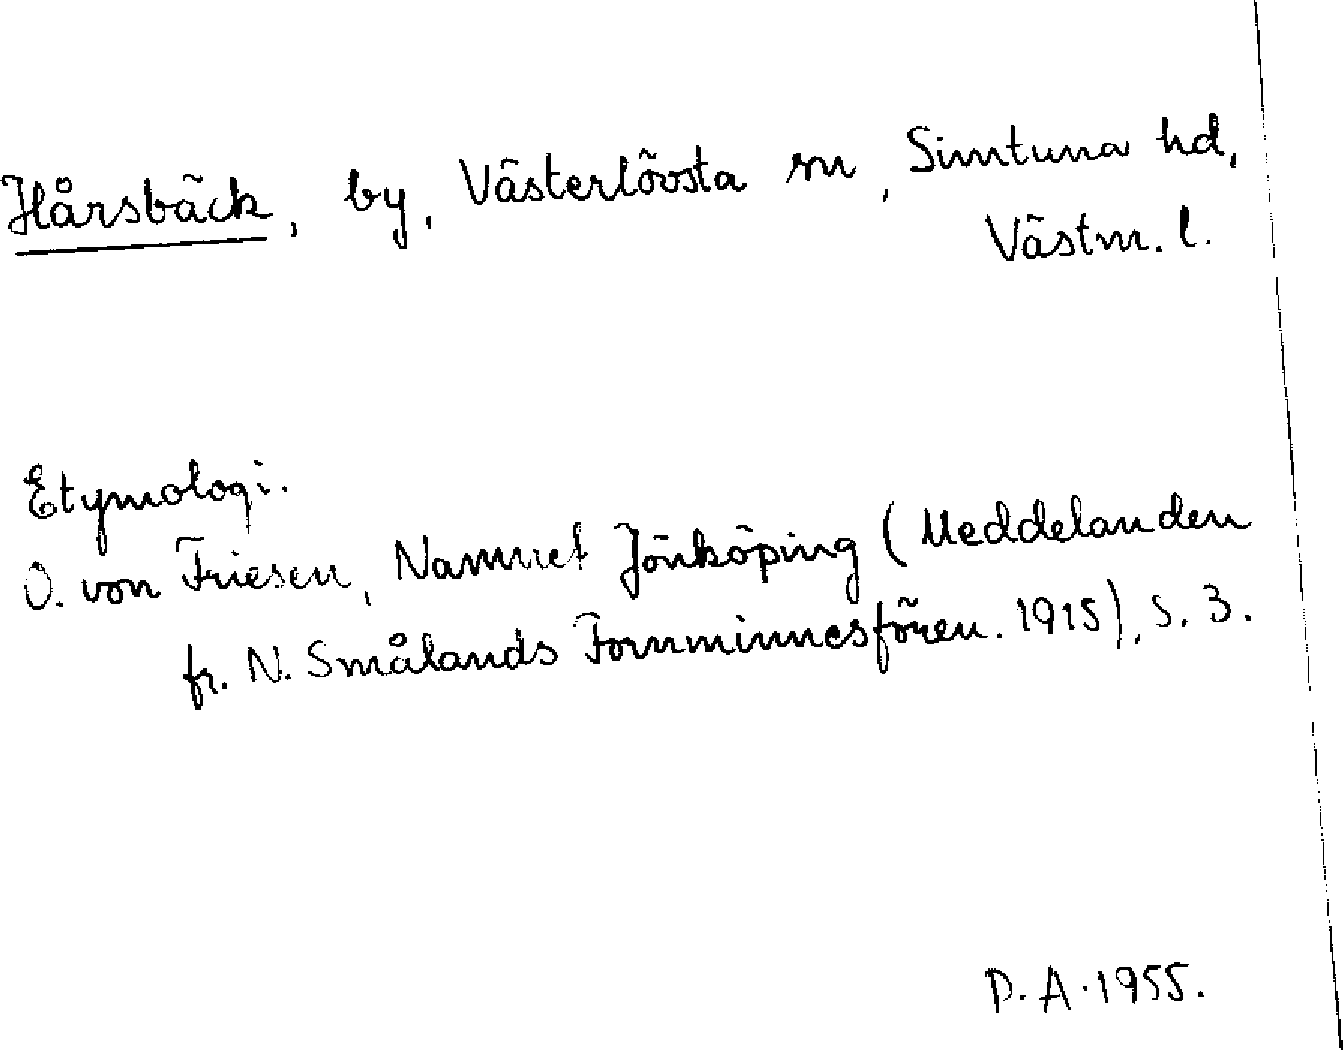 Hårsbäck, by, Västerlövsta sn, Simtuna hd,
Västm. l.
Etymologi.
O. von Friesen, Namnet Jönköping (Meddelanden
fr. N. Smålands Fornminnesfören. 1915), s. 3.
D. A. 1955.